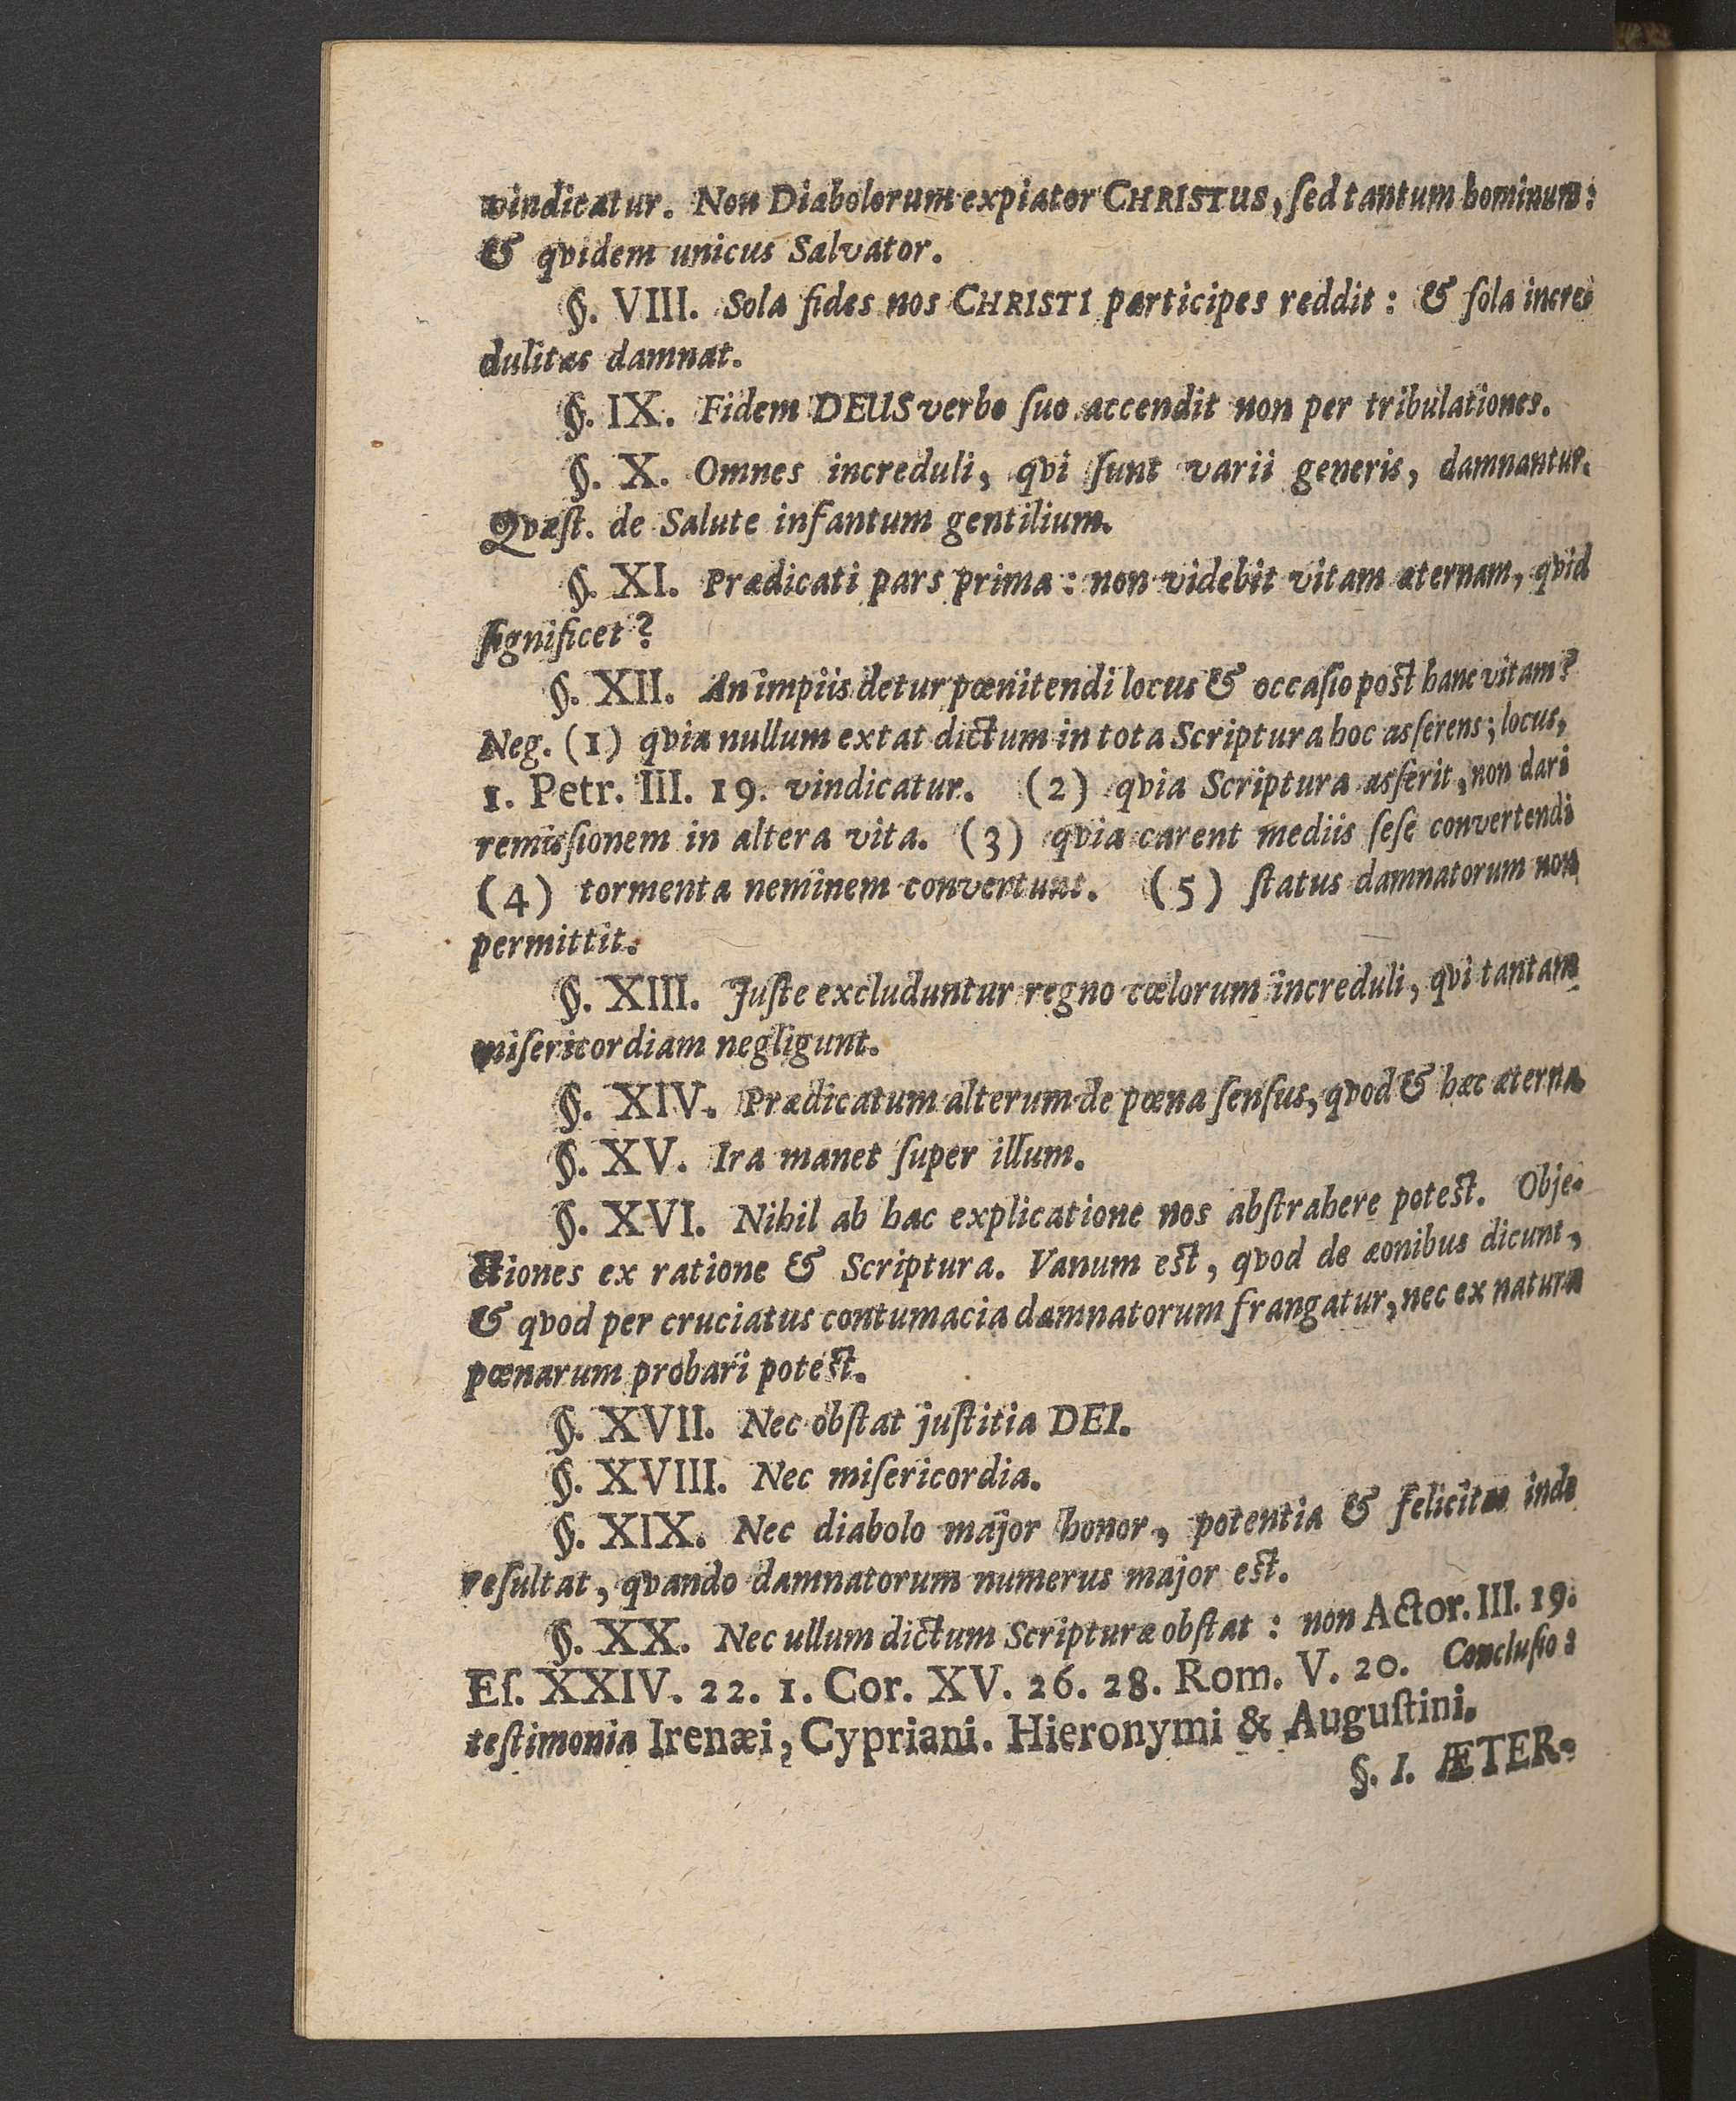 vindicatur. Non Diabolorum expiator CHRISTUS, ſed tantum hominum:
& qvidem unicus Salvator.
§. VIII. Sola fides nos CHRISTI participes reddit: & ſola incre-
dulitas damnat.
§. IX. Fidem DEUS verbo ſuo accendit non per tribulationes.
§. X. Omnes increduli, qvi ſunt varii generis, damnantur.
Qvæſt. de Salute infantum gentilium.
§. XI. Prædicati pars prima: non videbit vitam æternam, qvid
ſignificet?
§. XII. An impiis detur pœnitendi locus & occaſio poſt hanc vitam?
Neg. (1) qvia nullum extat dictum in tota Scriptura hoc asſerens; locus,
1. Petr. III. 19. vindicatur. (2) qvia Scriptura asſerit, non dari
remisſionem in altera vita. (3) qvia carent mediis ſeſe convertendi
(4) tormenta neminem convertunt. (5) ſtatus damnatorum non
permittit.
§. XIII. Juſte excluduntur regno cœlorum increduli, qvi tantam
miſericordiam negligunt.
§. XIV. Prædicatum alterum de pœna ſenſus, qvod & hæc æterna.
§. XV. Ira manet ſuper illum.
§. XVI. Nihil ab hac explicatione nos abſtrahere poteſt. Obje-
ctiones ex ratione & Scriptura. Vanum eſt, qvod de æonibus dicunt,
& qvod per cruciatus contumacia damnatorum frangatur, nec ex natura
pœnarum probari poteſt.
§. XVII. Nec obſtat juſtitia DEI.
§. XVIII. Nec miſericordia.
§. XIX. Nec diabolo major honor, potentia & felicitas inde
reſultat, qvando damnatorum numerus major eſt.
§. XX. Nec ullum dictum Scripturæ obſtat: non Actor. III. 19.
Eſ. XXIV. 22. 1. Cor. XV. 26. 28. Rom. V. 20. Concluſio:
teſtimonia Irenæi, Cypriani. Hieronymi & Auguſtini.
§. I. ÆTER-